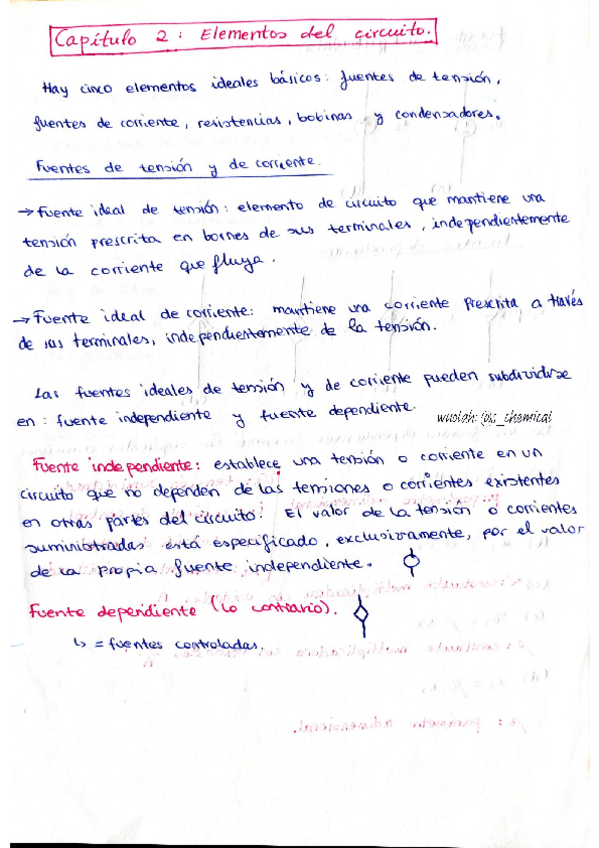 Capítulo 2: Elementos del circuito.
Hay cinco elementos ideales básicos: fuentes de tensión,
fuentes de corriente, resistencias, bobinas y condensadores.
Fuentes de tensión y de corriente.
→ Fuente ideal de tensión: elemento de circuito que mantiene una
tensión prescrita en bornes de sus terminales, independientemente
de la corriente que fluya.
→ Fuente ideal de corriente: mantiene una corriente prescrita a través
de sus terminales, independientemente de la tensión.
Las fuentes ideales de tensión y de corriente pueden subdividirse
en: fuente independiente y fuente dependiente.
wuolah: @si_chemical
Fuente independiente: establece una tensión o corriente en un
circuito que no dependen de las tensiones o corrientes existentes
en otras partes del circuito. El valor de la tensión o corrientes
suministradas está especificado, exclusivamente, por el valor
de la propia fuente independiente.
Fuente dependiente (lo contrario).
↳ = fuentes controladas.